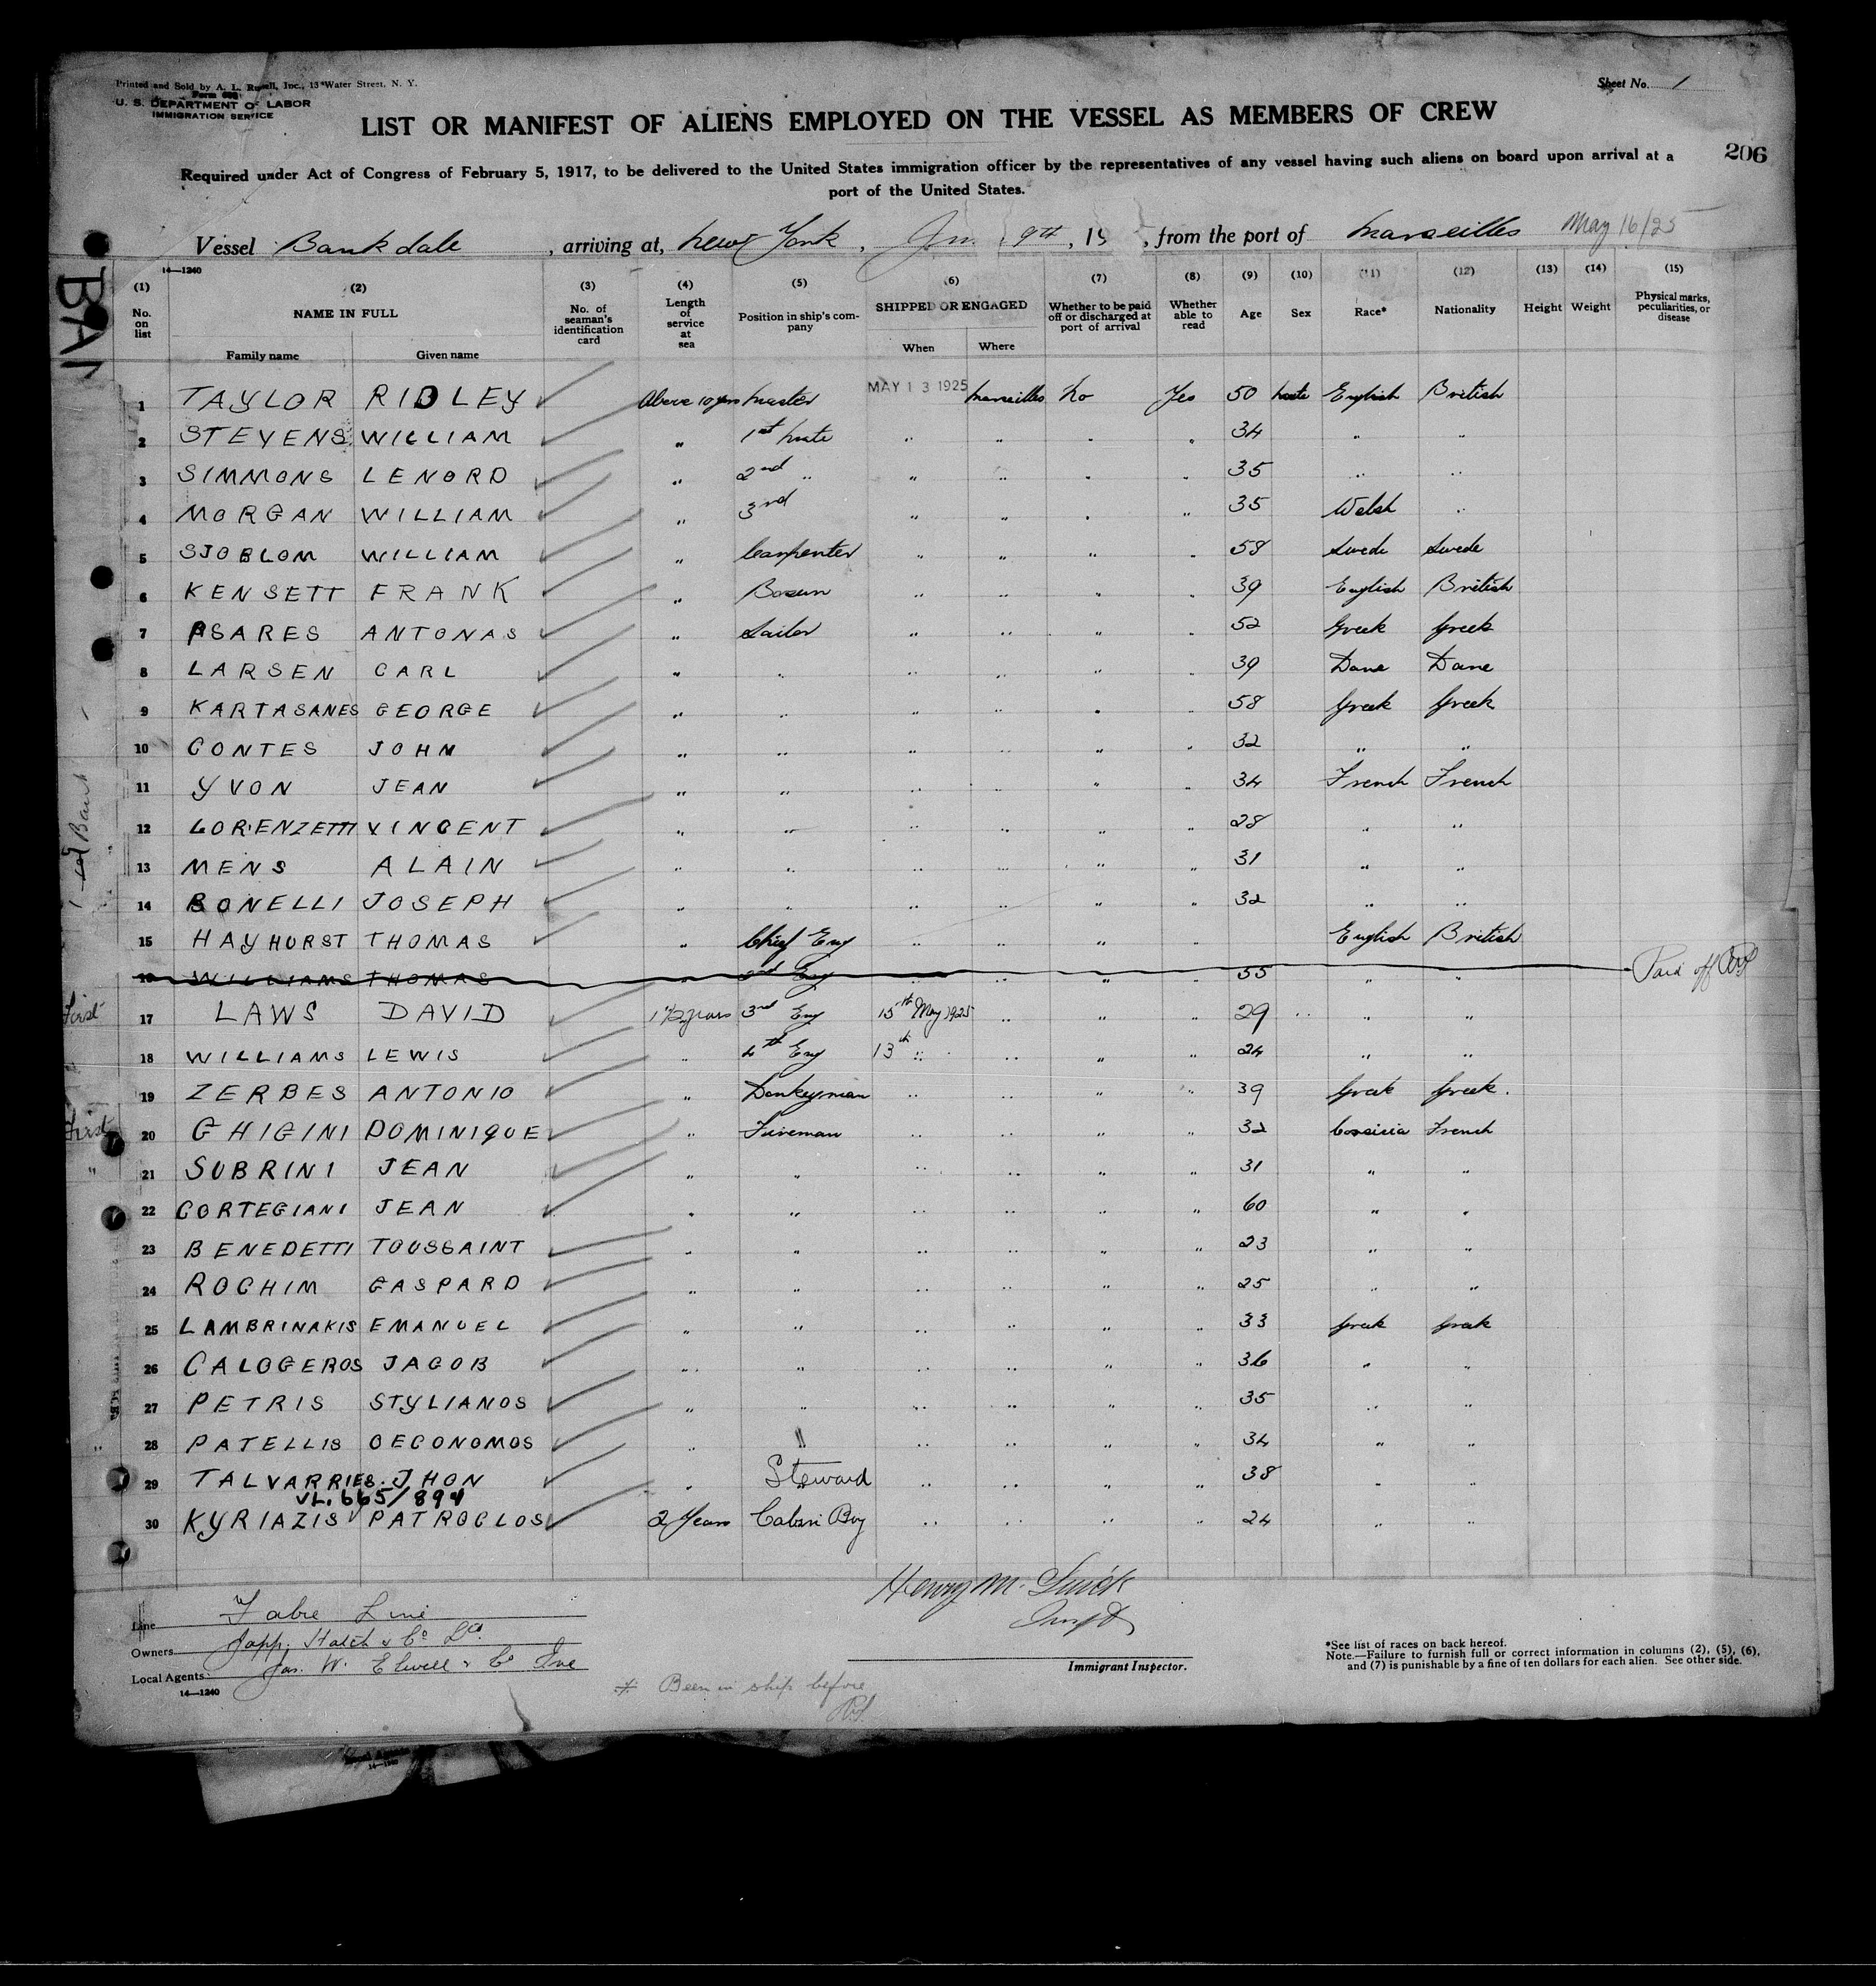 Printed and Sold by A. L. Russell, Inc., 13 Water Street, N. Y.
Sheet No. 1
U. S. DEPARTMENT OF LABOR
IMMIGRATION SERVICE
LIST OR MANIFEST OF ALIENS EMPLOYED ON THE VESSEL AS MEMBERS OF CREW
206
Required under Act of Congress of February 5, 1917, to be delivered to the United States immigration officer by the representatives of any vessel having such aliens on board upon arrival at a
port of the United States.
Vessel Bankdale , arriving at, New York , Jun. 9th, 19 , from the port of Marseilles May 16/25
14—1240
(1) (2) (3) (4) (5) (6) (7) (8) (9) (10) (11) (12) (13) (14) (15)
No. on list NAME IN FULL No. of seaman's identification card Length of service at sea Position in ship's company SHIPPED OR ENGAGED Whether to be paid off or discharged at port of arrival Whether able to read Age Sex Race* Nationality Height Weight Physical marks, peculiarities, or disease
Family name Given name When Where
1 TAYLOR RIDLEY Above 10 yrs Master MAY 13 1925 Marseilles No Yes 50 Male English British
2 STEVENS WILLIAM " 1st Mate " " " " 34 " "
3 SIMMONS LENORD " 2nd " " " " " 35 " "
4 MORGAN WILLIAM " 3rd " " " " 35 Welsh "
5 SJOBLOM WILLIAM " Carpenter " " " " 58 Swede Swede
6 KENSETT FRANK " Bosun " " " " 39 English British
7 PSARES ANTONAS " Sailor " " " " 52 Greek Greek
8 LARSEN CARL " " " " " " 39 Dane Dane
9 KARTASANES GEORGE " " " " " " 58 Greek Greek
10 CONTES JOHN " " " " " " 32 " "
11 YVON JEAN " " " " " " 34 French French
12 LORENZETTI VINCENT " " " " " " 28 " "
13 MENS ALAIN " " " " " " 31 " "
14 BONELLI JOSEPH " " " " " " 32 " "
15 HAYHURST THOMAS " Chief Eng " " " " English British
16 WILLIAMS THOMAS " 2nd Eng " " " " 55 " " Paid off
First 17 LAWS DAVID 1 1/2 years 3rd Eng 15th May 1925 " " " 29 " " "
18 WILLIAMS LEWIS " 4th Eng 13th " " " " 24 " "
19 ZERBES ANTONIO " Donkeyman " " " " 39 Greek Greek.
First 20 GHIGINI DOMINIQUE " Fireman " " " " 32 Corsicia French
" 21 SUBRINI JEAN " " " " " " 31 " "
22 CORTEGIANI JEAN " " " " " " 60 " "
23 BENEDETTI TOUSSAINT " " " " " " 23 " "
24 ROCHIM GASPARD " " " " " " 25 " "
25 LAMBRINAKIS EMANUEL " " " " " " 33 Greek Greek
26 CALOGEROS JACOB " " " " " " 36 " "
27 PETRIS STYLIANOS " " " " " " 35 " "
28 PATELLIS OECONOMOS " " " " " " 34 " "
29 TALVARRIES JHON " Steward " " " " 38 " "
VL. 665/894
30 KYRIAZIS PATROCLOS 2 Years Cabin Boy " " " " 24 " "
Henry M.
Line Fabre Line
Owners Japp. Hatch & Co Ld.
Local Agents: Jas. W. Elwell & Co Inc
14—1240
Immigrant Inspector.
Been in ship before
*See list of races on back hereof.
Note.—Failure to furnish full or correct information in columns (2), (5), (6),
and (7) is punishable by a fine of ten dollars for each alien. See other side.